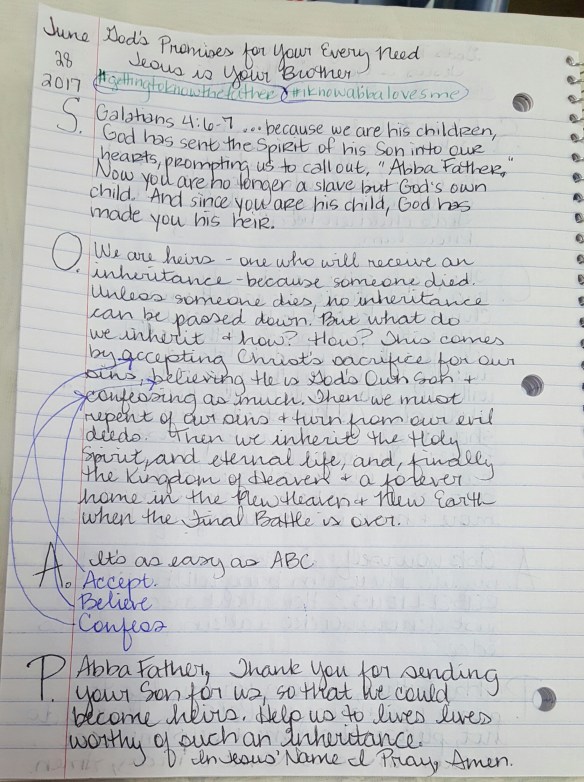 June God's Promises for Your Every Need
28 Jesus is Your Brother
2017 #gettingtoknowthefather #iknowabbalovesme
S. Galatians 4:6-7 ...because we are his children,
God has sent the Spirit of his Son into our
hearts, prompting us to call out, "Abba Father,"
Now you are no longer a slave but God's own
child. And since you are his child, God has
made you his heir.
O. We are heirs - one who will receive an
inheritance - because someone died.
Unless someone dies, no inheritance
can be passed down. But what do
we inherit + how? How? This comes
by accepting Christ's sacrifice for our
sins, believing He is God's Own Son +
confessing as much. Then we must
repent of our sins + turn from our evil
deeds. Then we inherit the Holy
Spirit, and eternal life, and, finally
the Kingdom of Heaven + a forever
home in the New Heaven + New Earth
when the Final Battle is over.
A. It's as easy as ABC
Accept.
Believe
Confess
P. Abba Father, Thank You for sending
your Son for us, so that we could
become heirs. Help us to lives lives
worthy of such an inheritance.
In Jesus' Name I Pray, Amen.